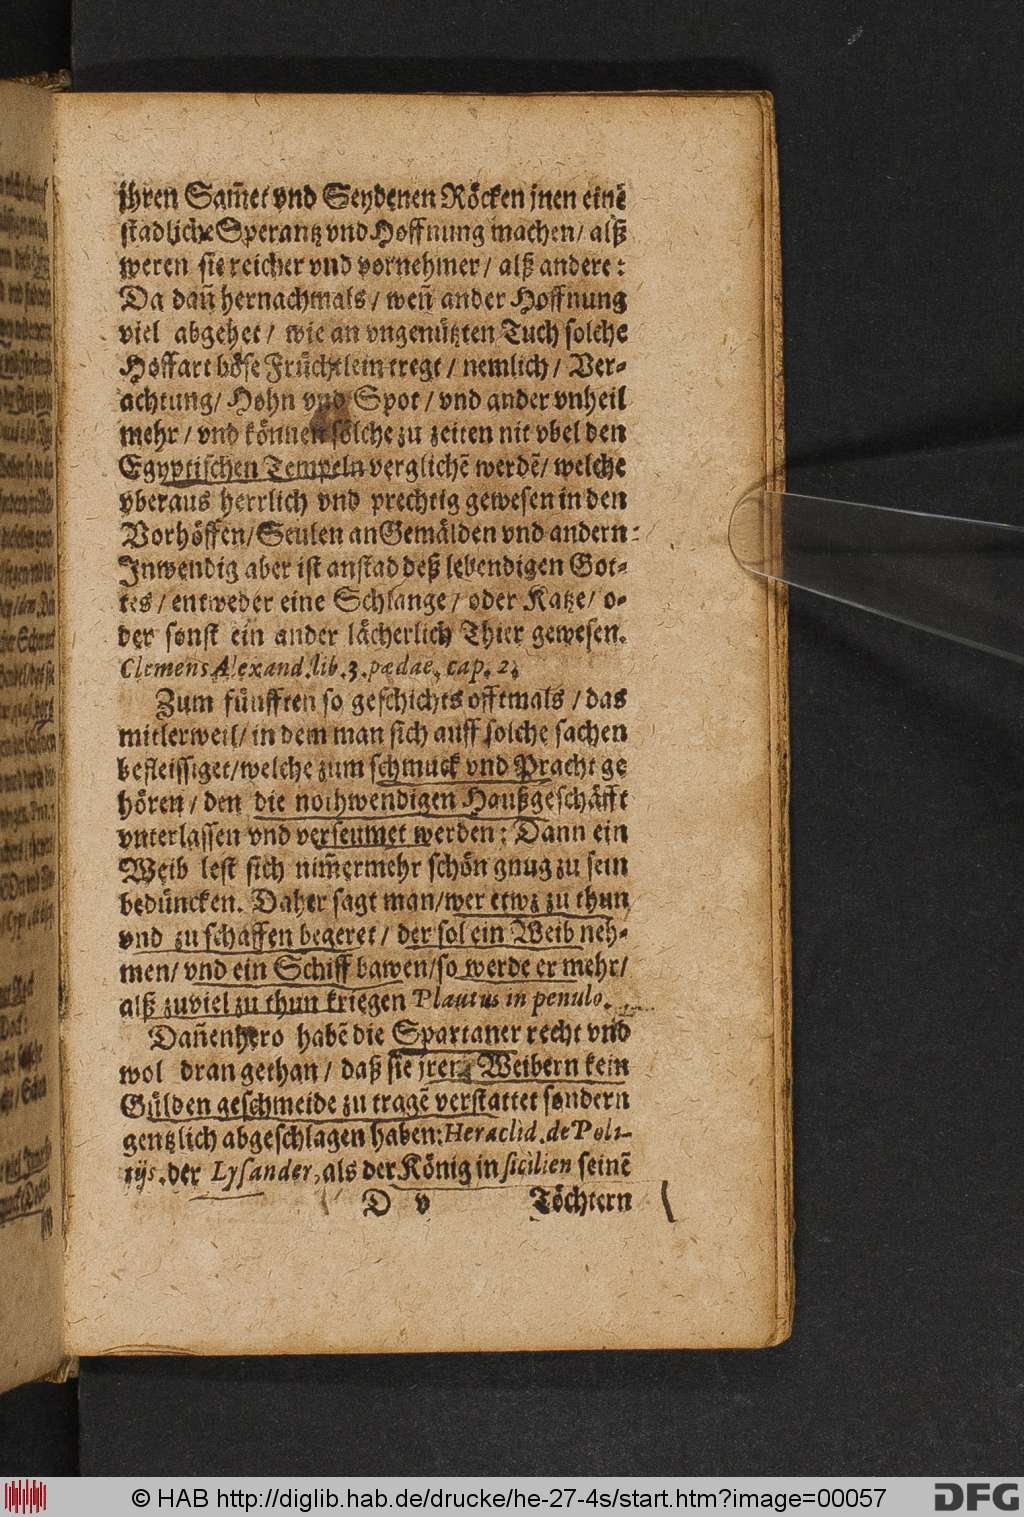 ihren Sam̃et vnd Seydenen Röcken jnen einẽ
stadliche Sperantz vnd Hoffnung machen / alß
weren sie reicher vnd vornehmer / alß andere:
Da dañ hernachmals / weñ ander Hoffnung
viel abgehet / wie an vngenützten Tuch solche
Hoffart böse Früchtlein tregt / nemlich / Ver-
achtung / Hohn vnd Spot / vnd ander vnheil
mehr / vnd können solche zu zeiten nit vbel den
Egyptischen Tempeln verglichẽ werdẽ / welche
vberaus herrlich vnd prechtig gewesen in den
Vorhöffen / Seulen an Gemälden vnd andern:
Inwendig aber ist anstad deß lebendigen Got-
tes / entweder eine Schlange / oder Katze / o-
der sonst ein ander lächerlich Thier gewesen.
Clemens Alexand. lib. 3. pædae. cap. 2.
Zum fünfften so geschichts offtmals / das
mitlerweil / in dem man sich auff solche sachen
befleissiget / welche zum schmuck vnd Pracht ge
hören / den die nothwendigen Haußgeschäfft
vnterlassen vnd verseumet werden: Dann ein
Weib lest sich nim̃ermehr schön gnug zu sein
bedüncken. Daher sagt man / wer etwz zu thun
vnd zu schaffen begeret / der sol ein Weib neh-
men / vnd ein Schiff bawen / so werde er mehr /
alß zuviel zu thun kriegen Plautus in penulo.
Dañenhero habẽ die Spartaner recht vnd
wol dran gethan / daß sie jren Weibern kein
Gülden geschmeide zu tragẽ verstattet sondern
gentzlich abgeschlagen haben: Heraclid. de Poli-
tijs. der Lysander, als der König in sicilien seinẽ
D v Töchtern
© HAB http://diglib.hab.de/drucke/he-27-4s/start.htm?image=00057
DFG